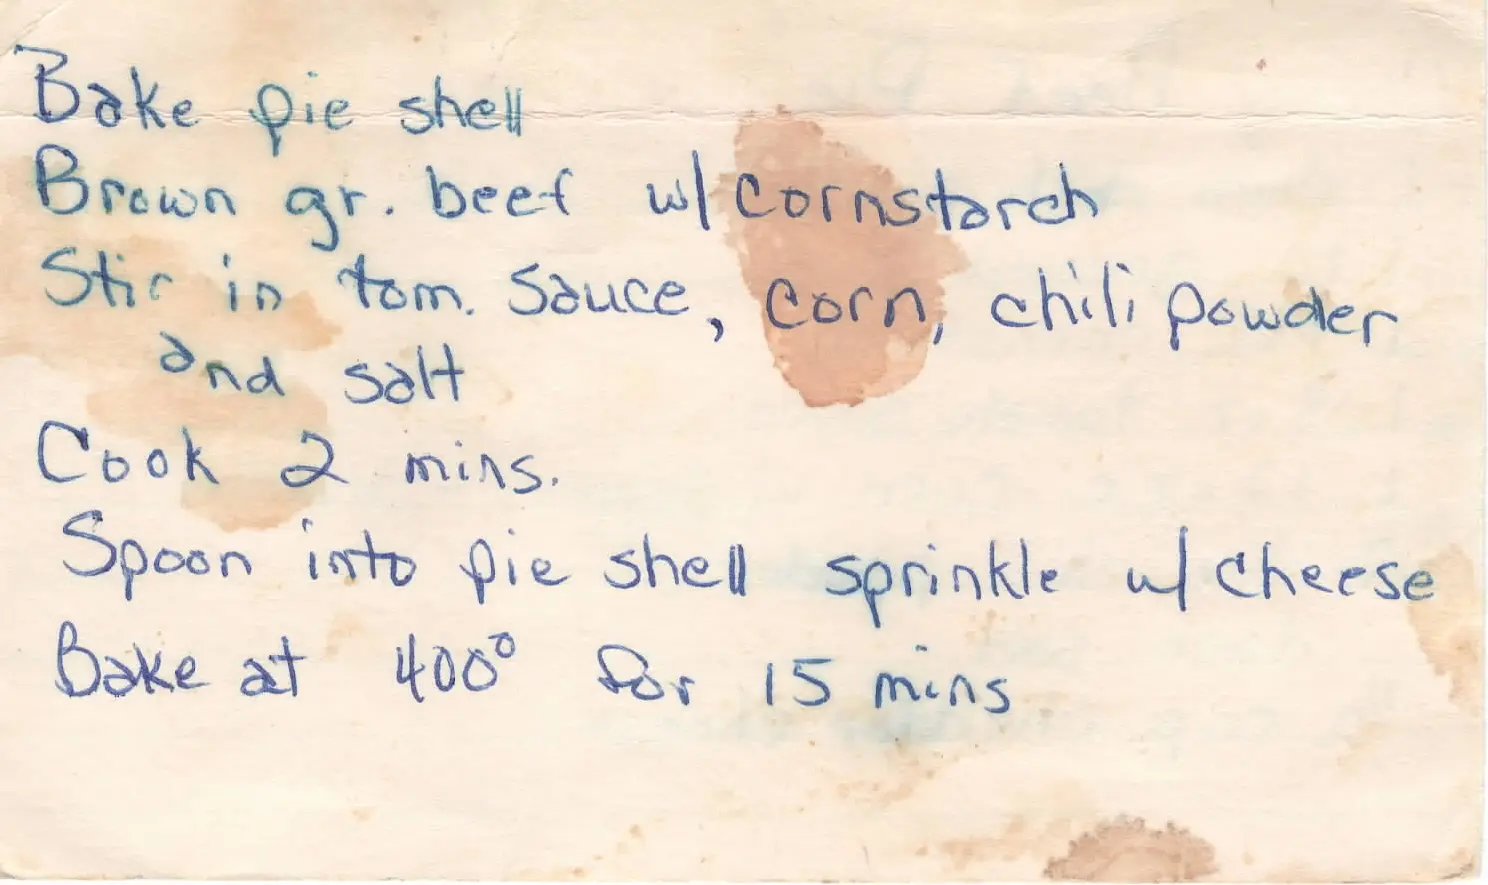 Bake pie shell
Brown gr. beef w/ cornstarch
Stir in tom. Sauce, corn, chili powder
and salt
Cook 2 mins.
Spoon into pie shell sprinkle w/ cheese
Bake at 400° for 15 mins